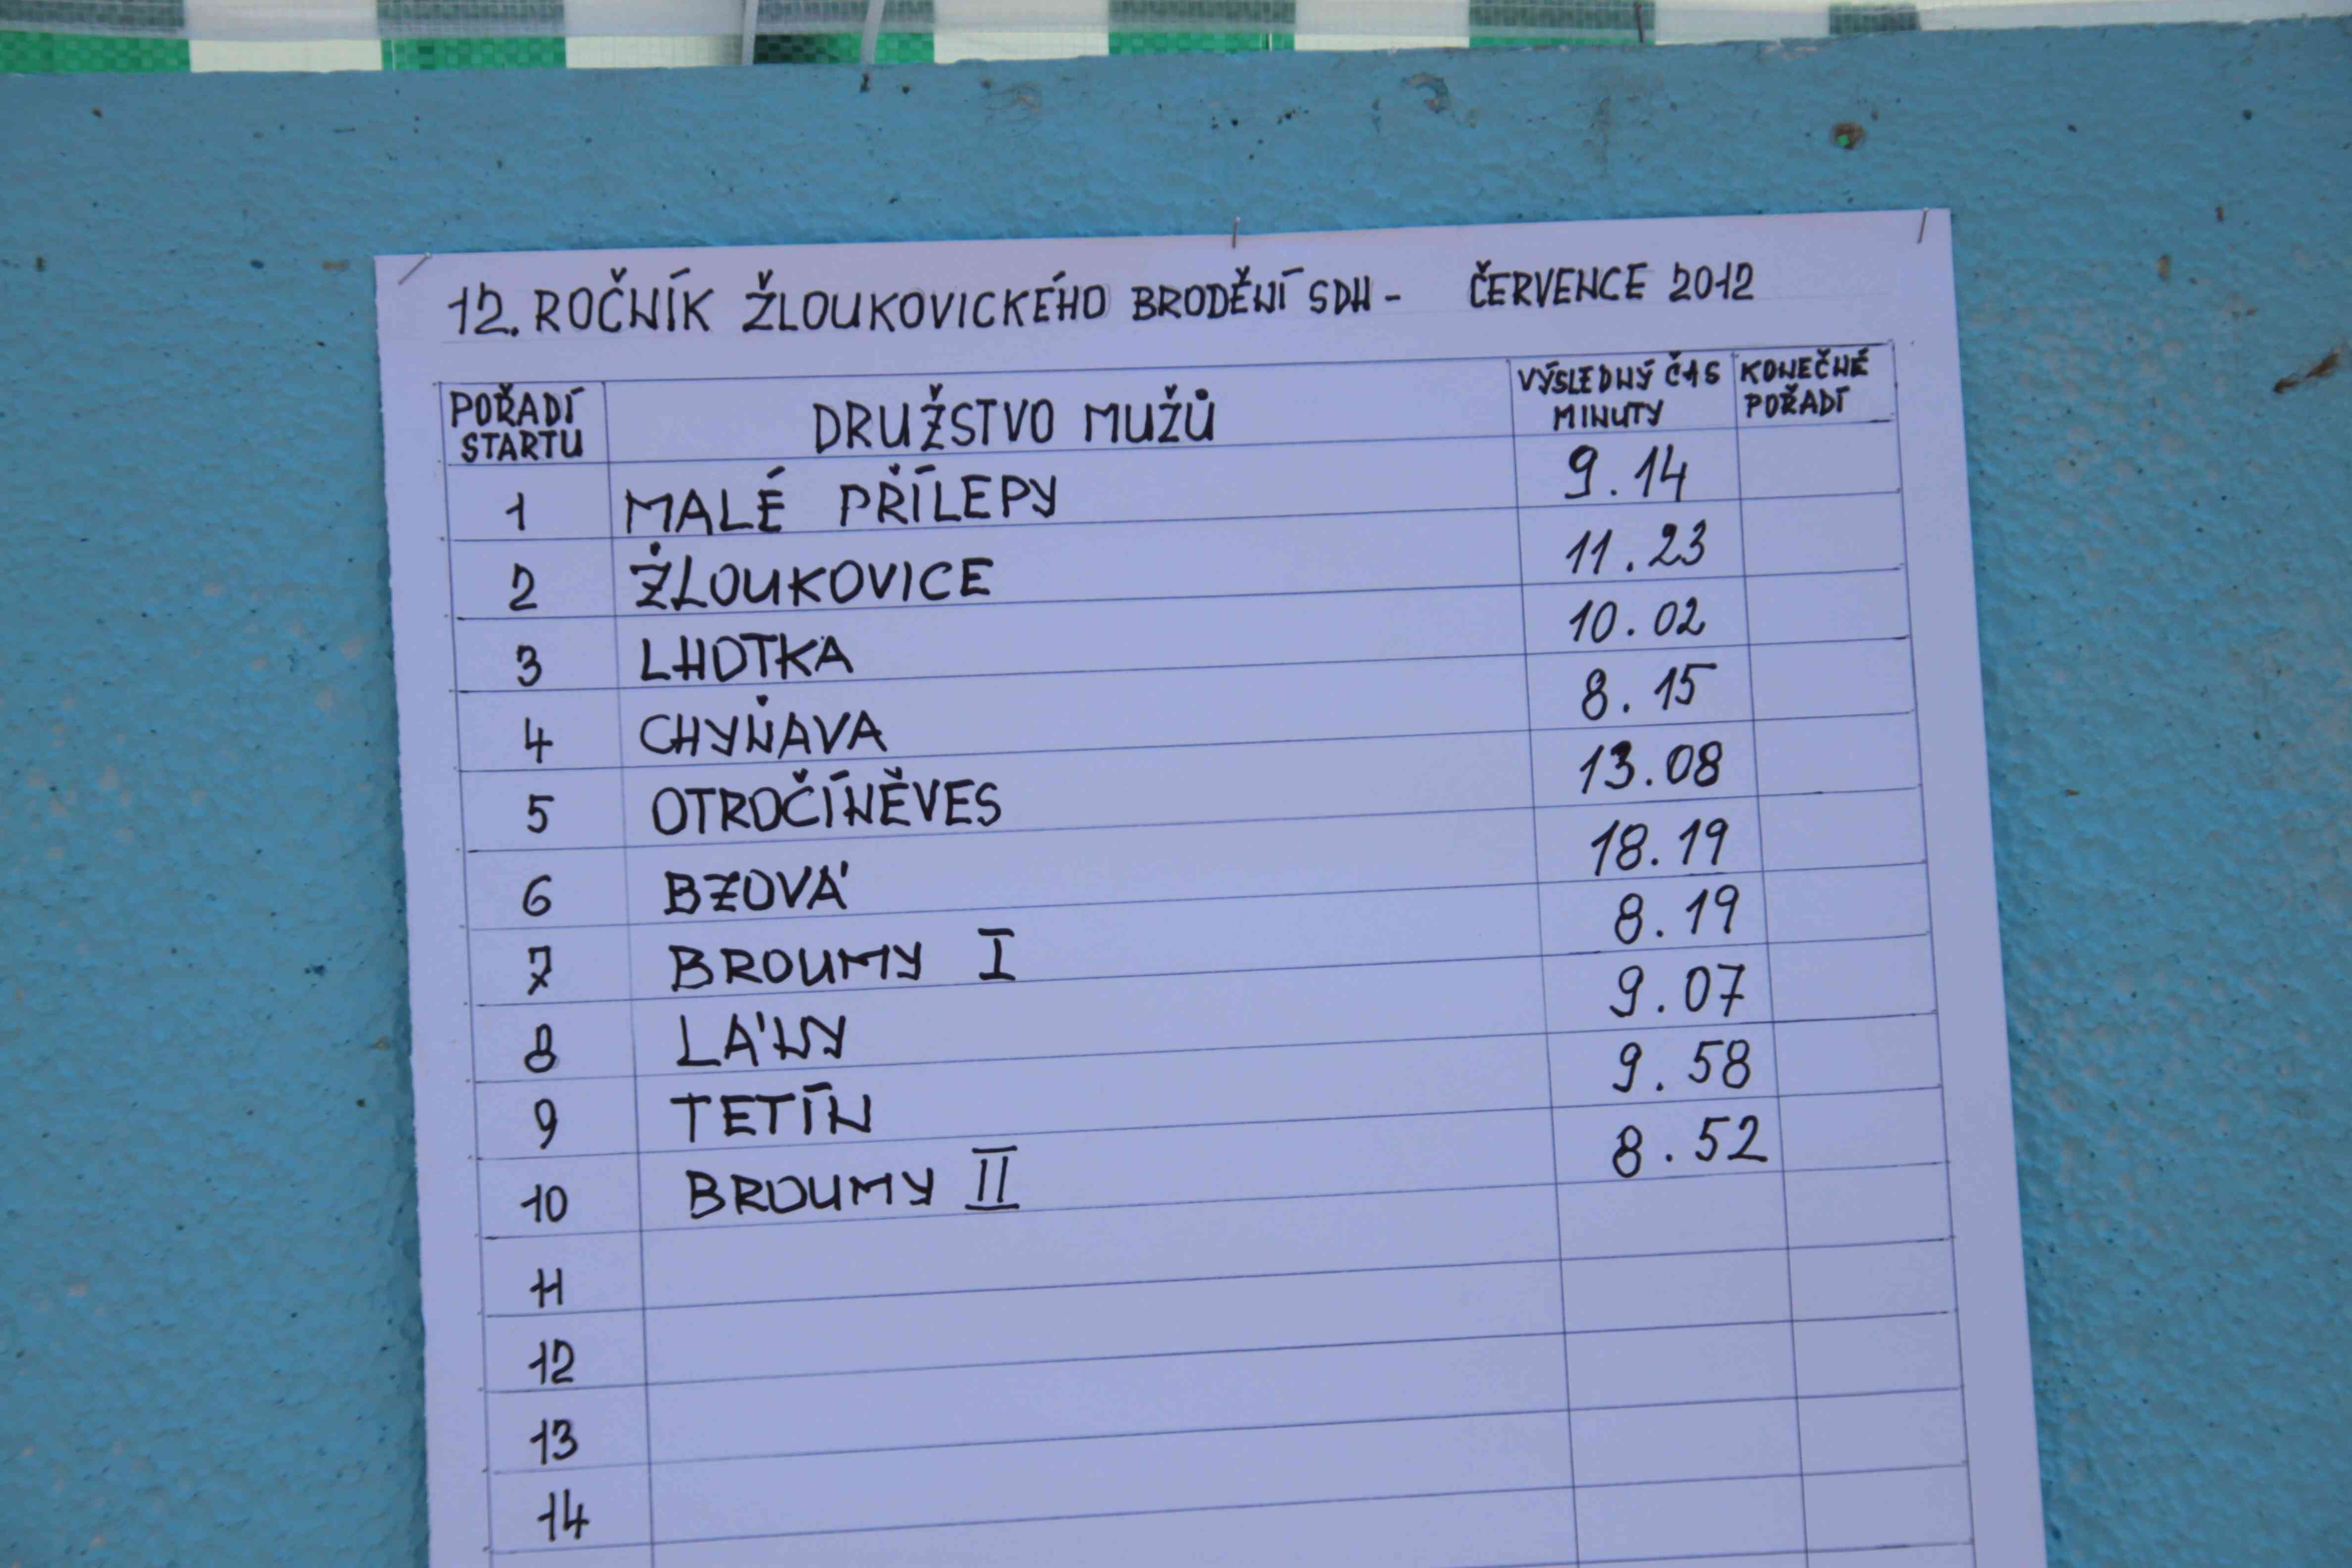 12. ROČNÍK ŽLOUKOVICKÉHO BRODĚNÍ SDH - ČERVENCE 2012
POŘADÍ STARTU DRUŽSTVO MUŽŮ VÝSLEDNÝ ČAS MINUTY KONEČNÉ POŘADÍ
1 MALÉ PŘÍLEPY 9.14
2 ŽLOUKOVICE 11.23
3 LHOTKA 10.02
4 CHYŇAVA 8.15
5 OTROČÍNĚVES 13.08
6 BZOVÁ 18.19
7 BROUMY I 8.19
8 LÁNY 9.07
9 TETÍN 9.58
10 BROUMY II 8.52
11
12
13
14